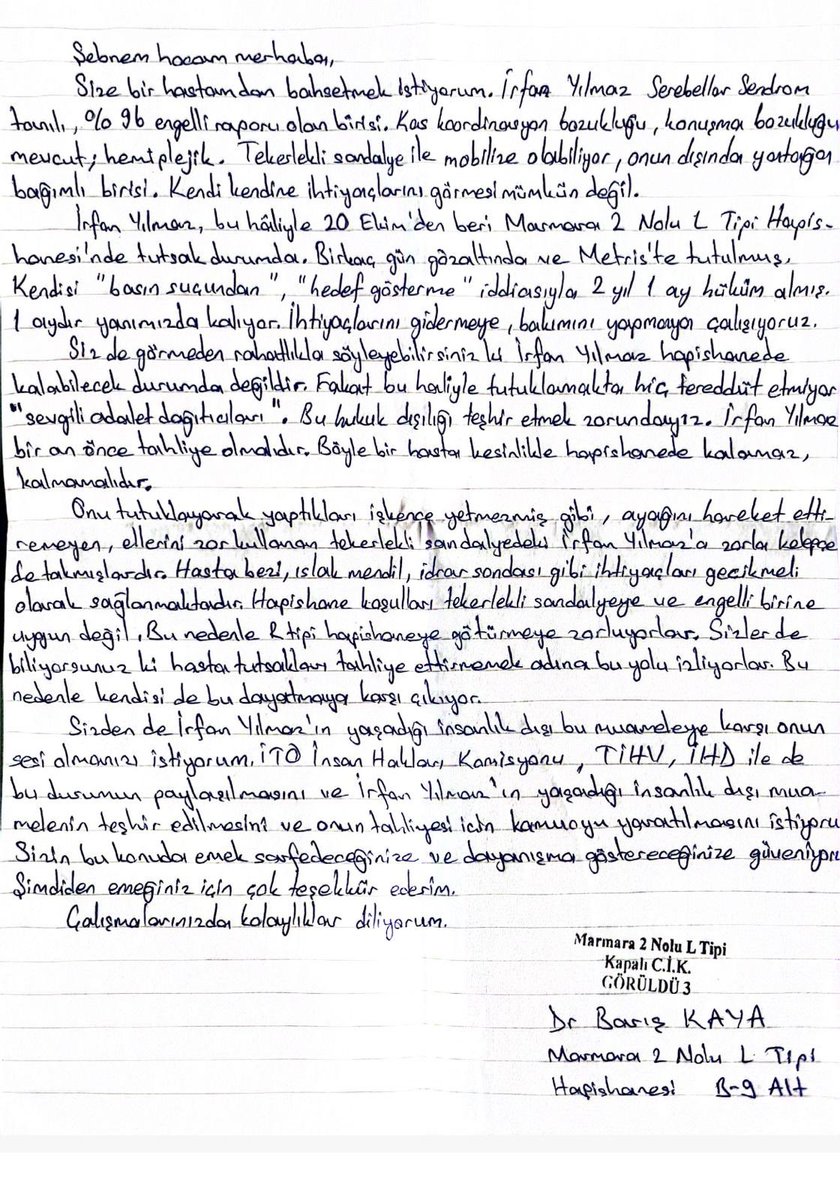 Şebnem hocam merhaba,
Size bir hastamdan bahsetmek istiyorum. İrfan Yılmaz Serebellar Sendrom
tanılı, %96 engelli raporu olan birisi. Kas koordinasyon bozukluğu, konuşma bozukluğu
mevcut; hemiplejik. Tekerlekli sandalye ile mobilize olabiliyor, onun dışında yatağa
bağımlı birisi. Kendi kendine ihtiyaçlarını görmesi mümkün değil.
İrfan Yılmaz, bu hâliyle 20 Ekim'den beri Marmara 2 Nolu L Tipi Hapis-
hanesi'nde tutsak durumda. Birkaç gün gözaltında ve Metris'te tutulmuş.
Kendisi "basın suçundan", "hedef gösterme" iddiasıyla 2 yıl 1 ay hüküm almış.
1 aydır yanımızda kalıyor. İhtiyaçlarını gidermeye, bakımını yapmaya çalışıyoruz.
Siz de görmeden rahatlıkla söyleyebilirsiniz ki İrfan Yılmaz hapishanede
kalabilecek durumda değildir. Fakat bu haliyle tutuklamakta hiç tereddüt etmiyor
"sevgili adalet dağıtıcıları". Bu hukuk dışılığı teşhir etmek zorundayız. İrfan Yılmaz
bir an önce tahliye olmalıdır. Böyle bir hasta kesinlikle hapishanede kalamaz,
kalmamalıdır.
Onu tutuklayarak yaptıkları işkence yetmezmiş gibi, ayağını hareket etti-
remeyen, ellerini zor kullanan tekerlekli sandalyedeki İrfan Yılmaz'a zorla kelepçe
de takmışlardır. Hasta bezi, ıslak mendil, idrar sondası gibi ihtiyaçları gecikmeli
olarak sağlanmaktadır. Hapishane koşulları tekerlekli sandalyeye ve engelli birine
uygun değil. Bu nedenle R tipi hapishaneye götürmeye zorluyorlar. Sizler de
biliyorsunuz ki hasta tutsakları tahliye ettirmemek adına bu yolu izliyorlar. Bu
nedenle kendisi de bu dayatmaya karşı çıkıyor.
Sizden de İrfan Yılmaz'ın yaşadığı insanlık dışı bu muameleye karşı onun
sesi olmanızı istiyorum. İTO İnsan Hakları Komisyonu, TİHV, İHD ile de
bu durumun paylaşılmasını ve İrfan Yılmaz'ın yaşadığı insanlık dışı mua-
melenin teşhir edilmesini ve onun tahliyesi için kamuoyu yaratılmasını istiyoru
Sizin bu konuda emek sarfedeceğinize ve dayanışma göstereceğinize güveniyor
Şimdiden emeğiniz için çok teşekkür ederim.
Çalışmalarınızda kolaylıklar diliyorum.
Marmara 2 Nolu L Tipi
Kapalı C.İ.K.
GÖRÜLDÜ 3
Dr Barış KAYA
Marmara 2 Nolu L Tipi
Hapishanesi B-9 Alt